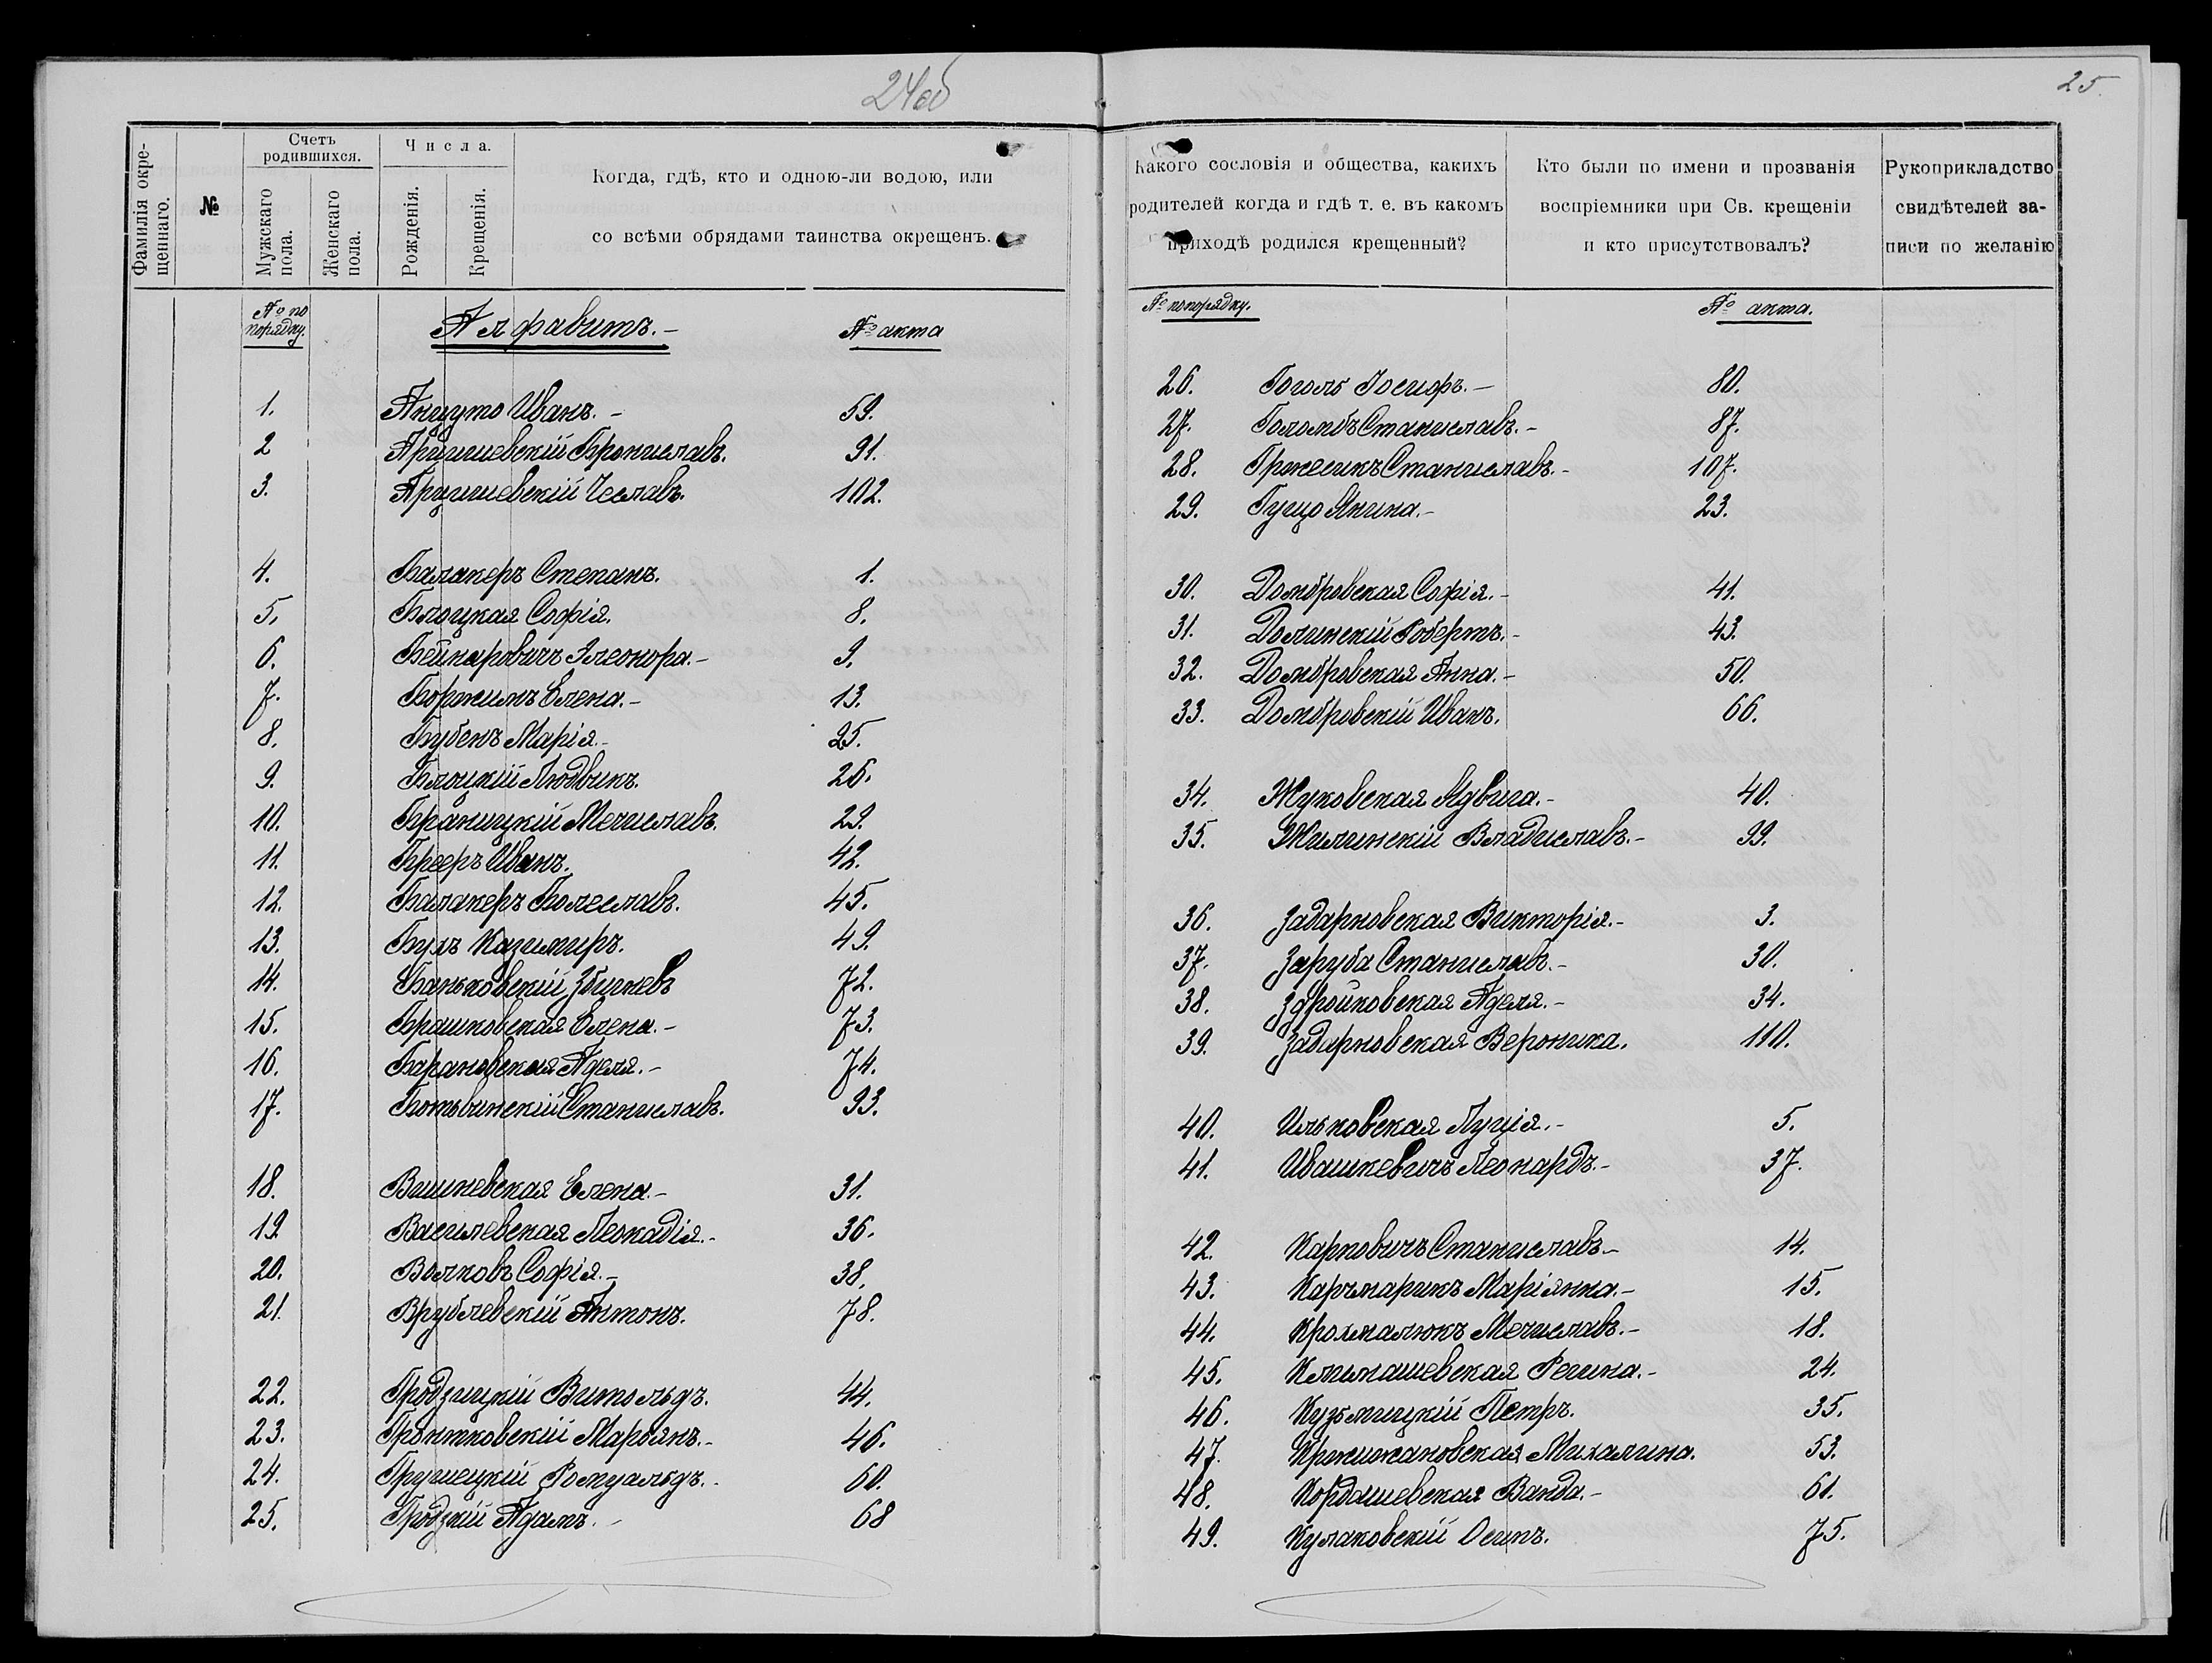 24об
25.
Фамилія окрещеннаго.
№
Счетъ родившихся.
Мужскаго пола.
Женскаго пола.
Числа.
Рожденія.
Крещенія.
Когда, гдѣ, кто и одною-ли водою, или
со всѣми обрядами таинства окрещенъ.
Какого сословія и общества, какихъ
родителей когда и гдѣ т. е. въ какомъ
приходѣ родился крещенный?
Кто были по имени и прозванія
воспріемники при Св. крещеніи
и кто присутствовалъ?
Рукоприкладство
свидѣтелей за-
писи по желанію
№ по порядку. Алфавитъ.- № акта
1. Анцуто Иванъ.- 59.
2 Арцишевскій Брониславъ. 91.
3. Арцишевскій Чеславъ. 102.
4. Балакеръ Степанъ. 1.
5. Блоцкая Софія. 8.
6. Бейнаровичъ Элеонора.- 9.
7. Боржимъ Елена.- 13.
8. Бубенъ Марія.- 25.
9. Блоцкій Людвикъ. 26.
10. Браницкій Мечиславъ. 29.
11. Брееръ Иванъ. 42.
12. Балакеръ Болеславъ. 45.
13. Буль Казимиръ. 49.
14. Баньковскій Збигневъ 72.
15. Брашковская Елена.- 73.
16. Барановская Аделя.- 74.
17. Ботвинскій Станиславъ. 93.
18. Вишневская Елена.- 31.
19. Василевская Леокадія.- 36.
20. Волковъ Софія.- 38.
21. Врублевскій Антонъ. 78.
22. Гродзицкій Витольдъ. 44.
23. Гронтковскій Марьянъ.- 46.
24. Грушецкій Ромуальдъ.- 60.
25. Гродзкій Адамъ.- 68
№ по порядку. № акта.
26. Гоголь Іосифъ.- 80.
27. Голомбъ Станиславъ.- 87.
28. Гржесикъ Станиславъ.- 107.
29. Гуцо Янина.- 23.
30. Домбровская Софія.- 41.
31. Долинскій Робертъ.- 43.
32. Домбровская Анна.- 50.
33. Домбровскій Иванъ. 66.
34. Жуковская Ядвига.- 40.
35. Жилинскій Владиславъ.- 99.
36. Задарновская Викторія.- 3.
37. Заруба Станиславъ.- 30.
38. Здройковская Аделя.- 34.
39. Задарновская Вероника. 110.
40. Ильковская Луція.- 5.
41. Ивашкевичъ Леонардъ.- 37.
42. Карповичъ Станиславъ.- 14.
43. Карчмарикъ Маріянна.- 15.
44. Крохмалюкъ Мечиславъ.- 18.
45. Климашевская Регина.- 24.
46. Кузьмицкій Петръ. 35.
47. Кржижановская Михалина. 53.
48. Кордашевская Ванда.- 61.
49. Кулаковскій Осипъ. 75.